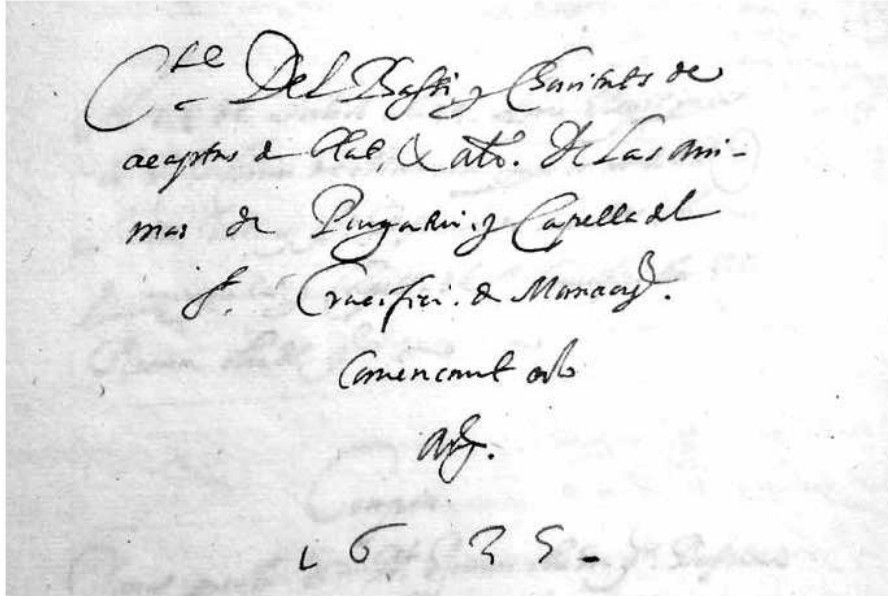 Del Bassi y Charitats de
acaptas de blat, & altr. De Las Ani-
mas de Purgatori y Capella del
St. Crucifici. de Manacor.
Comencant
Any.
1635